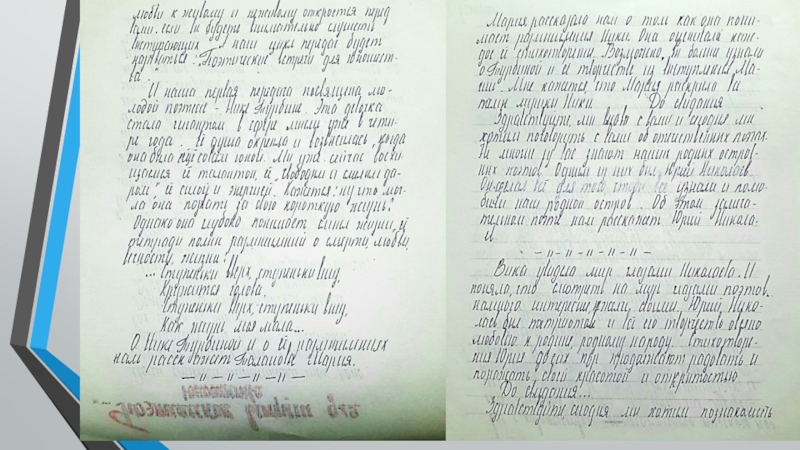 любви к живому и красивому откроется перед
вами, если вы будете внимательно слушать
выступающих. И наш цикл передач будет
называться: "Поэтические встречи для юношест-
ва."
И наша первая передача посвящена мо-
лодой поэтессе - Нике Турбине. Эта девочка
стала гигантом в сфере мысли уже в четы-
ре года. Её душа окрепла и возвысилась, когда
она была ещё совсем юной. Мы уже сейчас восхи-
щаемся её талантом, её свободным и смелым да-
ром, её силой и энергией. Кажется: ну что мог-
ла она познать за свою короткую жизнь?
Однако она глубоко понимает смысл жизни, её
тетради полны размышлений о смерти, любви,
верности, жизни:
... Ступеньки вверх, ступеньки вниз,
Кружится голова.
Ступеньки вверх, ступеньки вниз,
Как жизнь моя мала...
О Нике Турбиной и о её размышлениях
нам расскажет Баланова Мария.
— " — " — " — " —
Поэтические встречи для
юношества
Мария рассказала нам о том как она пони-
мает размышления Ники. Она оценивала каж-
дое её стихотворение. Возможно, вы больше узнали
о Турбиной и её творчестве из выступления Ма-
рии. Мне кажется, что Мария раскрыла
тайны лирики Ники. До свидания.
Здравствуйте, мы вновь с вами и сегодня мы
хотим поговорить с вами об отечественных поэтах.
Не многие из вас знают наших родных остров-
ных поэтов. Одним из них был Юрий Николаев.
Он сделал всё для того, чтобы все узнали и полю-
били наш родной остров. Об этом замеча-
тельном поэте нам расскажет Юрий
— " — " — " — " —
Вика увидела мир глазами Николаева. И
поняла, что смотреть на мир глазами поэтов
намного интереснее, чем своими. Юрий Нико-
лаев был патриотом и всё его творчество овеяно
любовью к родине, родному народу. Стихотворе-
ния Юрия до сих пор продолжают радовать и
поражать своей красотой и открытостью.
До свидания...
Здравствуйте сегодня мы хотим познакомить